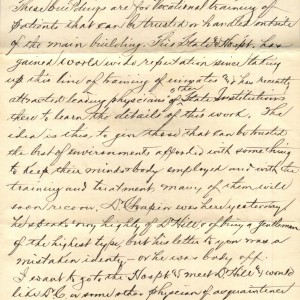 These buildings are for vocational training of
patients that can be trusted or handled outside
of the main building. This State Hospt. has
gained world wide reputation since taking
up this line of training of inmates & has recently
attracted leading physicians of other State Institutions
there to learn the details of this work. The
idea is this, to give those that can be trusted
the best of environments afforded with something
to keep their minds & body employed and with the
training and treatment many of them will
soon recover. Dr Chapin was here yesterday
he speaks very highly of Dr Hill as being a gentleman
of the highest type, but his letter to you was a
mistaken identy - or he was off.
I want to go to the Hospt & meet Dr Hill & would
like Dr C. or some other physician of acquaintence